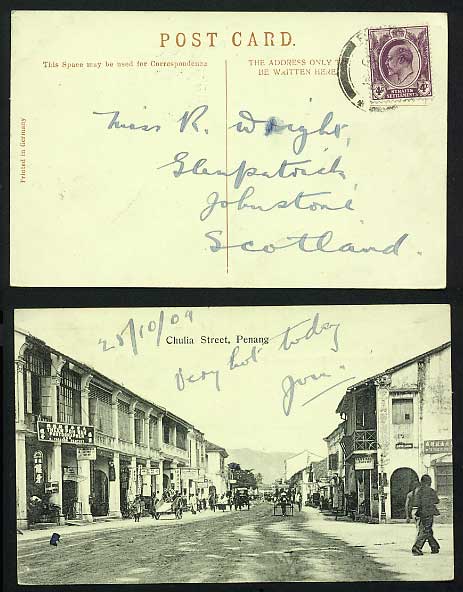 POST CARD.
This Space may be used for Correspondence
THE ADDRESS ONLY TO
BE WRITTEN HERE
Printed in Germany
STRAITS
SETTLEMENTS
Miss R. Wright,
Glenpatrick,
Johnstone
Scotland.
25/10/09
Chulia Street, Penang
Very hot today